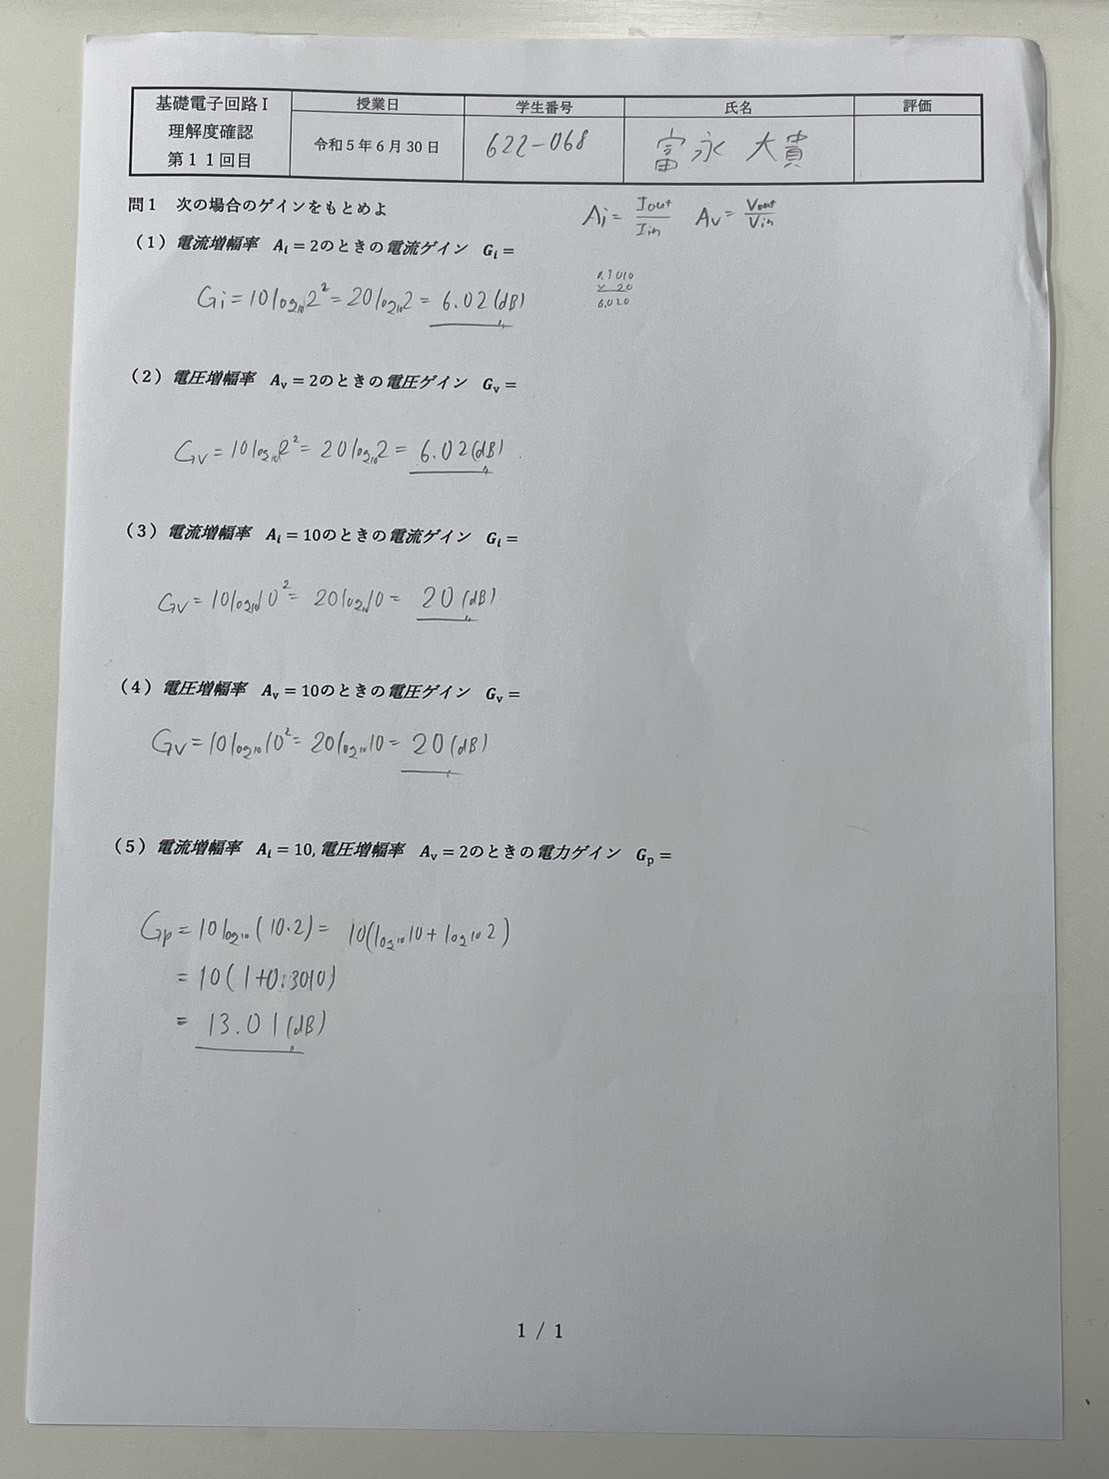 基礎電子回路Ⅰ
理解度確認
第11回目
授業日
令和5年6月30日
学生番号
622-068
氏名
富永 大貴
評価
問1 次の場合のゲインをもとめよ
Ai = Iout/Iin Av = Vout/Vin
(1) 電流増幅率 Ai = 2のときの電流ゲイン Gi =
Gi = 10log₁₀2² = 20log₁₀2 = 6.02(dB)
× 20
6.020
(2) 電圧増幅率 Av = 2のときの電圧ゲイン Gv =
Gv = 10log₁₀2² = 20log₁₀2 = 6.02(dB)
(3) 電流増幅率 Ai = 10のときの電流ゲイン Gi =
Gv = 10log₁₀10² = 20log₁₀10 = 20(dB)
(4) 電圧増幅率 Av = 10のときの電圧ゲイン Gv =
Gv = 10log₁₀10² = 20log₁₀10 = 20(dB)
(5) 電流増幅率 Ai = 10, 電圧増幅率 Av = 2のときの電力ゲイン Gp =
Gp = 10log₁₀(10·2) = 10(log₁₀10 + log₁₀2)
= 10(1+0.3010)
= 13.01(dB)
1 / 1